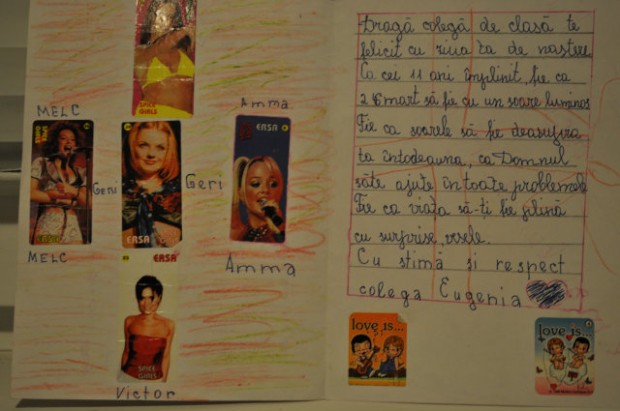 SPICE
GIRLS
MELC
Amma
EASA
Geri
Geri
EASA
MELC
Ammã
EASA
SPICE
GIRLS
Victor
Dragă colegă de clasă te
felicit cu ziua ta de naștere
Cu cei 11 ani împliniți, fie ca
26 mart să fie cu un soare luminos
Fie ca soarele să fie deasupra
ta întodeauna, ca Domnul
săte ajute în toate problemele
Fie ca viața să-ți fie plină
cu surprise, vesele.
Cu stimă și respect
colega Eugenia
love is...
love is...